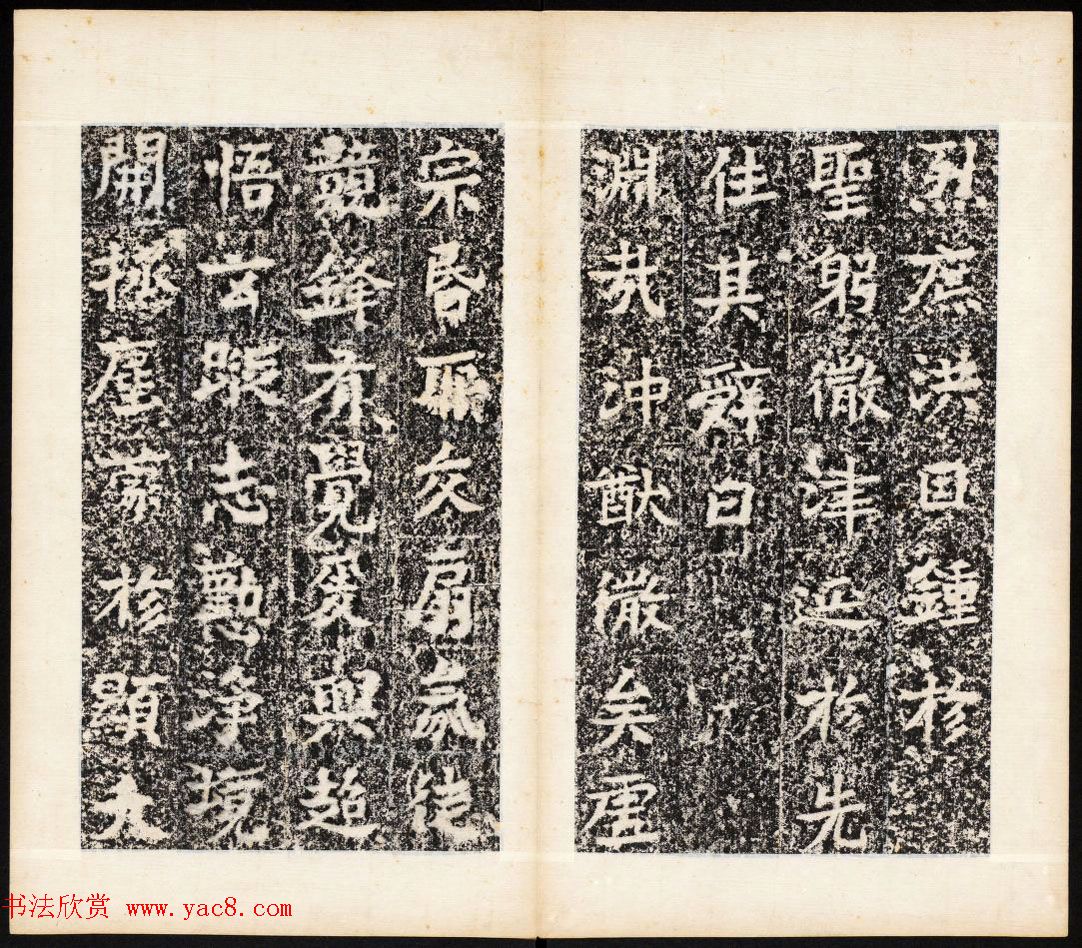 庶洪因鍾於
聖躬微津延於先
住其辭曰
淵哉沖猷微矣虛
宗昏交扇氣徒
競鋒有覺爰興超
悟玄蹤志懃淨境
開拯崖於顯大
书法欣赏 www.yac8.com